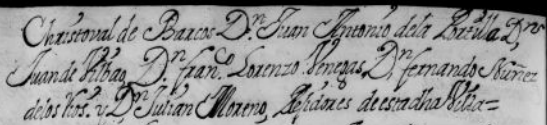 Christoval de Barcos Dⁿ. Juan Antonio dela Portilla, Dⁿ
Juan de Vilbao, Dⁿ. franᶜᵒ Lorenzo Venegas, Dⁿ fernando Nuñez
delos Rios. y Dⁿ Julian Moreno, Rexidores de esta dha Villa=